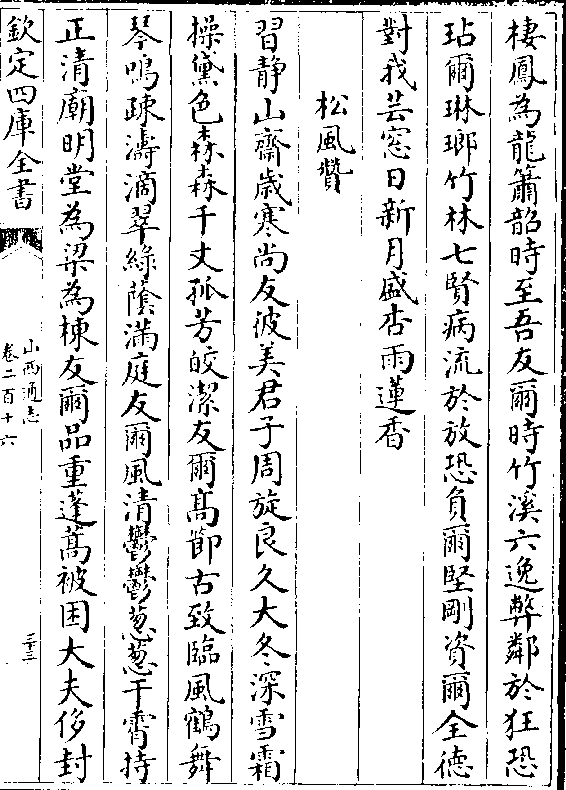 棲鳳為龍簫韶時至吾友爾時竹溪六逸弊鄰於狂恐
玷爾琳瑯竹林七賢病流於放恐負爾堅剛資爾全徳
對我芸窓日新月盛杏雨蓮香
松風贊
習静山齋嵗寒尚友彼美君子周旋良久大冬深雪霜
操黛色森森千丈孤芳皎潔友爾髙節古致臨風鶴舞
琴鳴疎濤滴翠綠䕃滿庭友爾風清鬱鬱葱葱干霄持
正清廟明堂為梁為棟友爾品重蓬蒿被困大夫侈封
欽定四庫全書
山西通志
卷二百十六
三十三